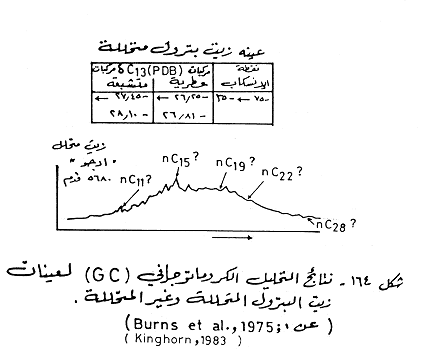 عينه زيت بترول متحللة
نقطة مركبات δC13(PDB) مركبات
الإنسكاب عطرية متشبعة
-٧٥ ← -٣٥ -٢٦٫٢٥ ← -٢٧٫٤٥ ←
-٢٦٫٨١ -٢٨٫١٠
زيت متحلل
"ادجو"
٥٦٨٠ قدم
nC11?
nC15?
nC19?
nC22?
nC28?
شكل ١٦٤ - نتائج التحليل الكروماتوجرافي (GC) لعينات
زيت البترول المتحللة وغير المتحللة .
(عن : Burns et al.,1975;)
(Kinghorn,1983)